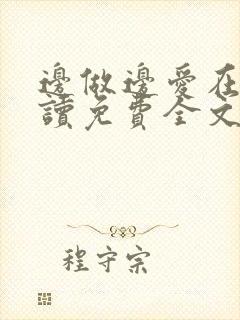 邊做邊愛在
讀免費全文
程守宗